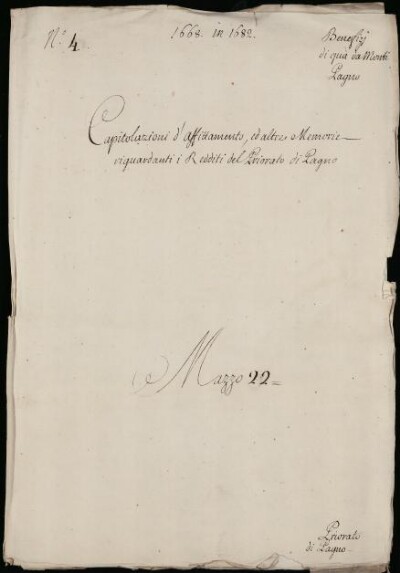 N.° 4.
1668. in 1682.
Benefizj
di quà da Monti
Pagno
Capitolazioni d'affittamento, ed altre Memorie
riguardanti i Redditi del Priorato di Pagno
Mazzo 22=
Priorato
di Pagno